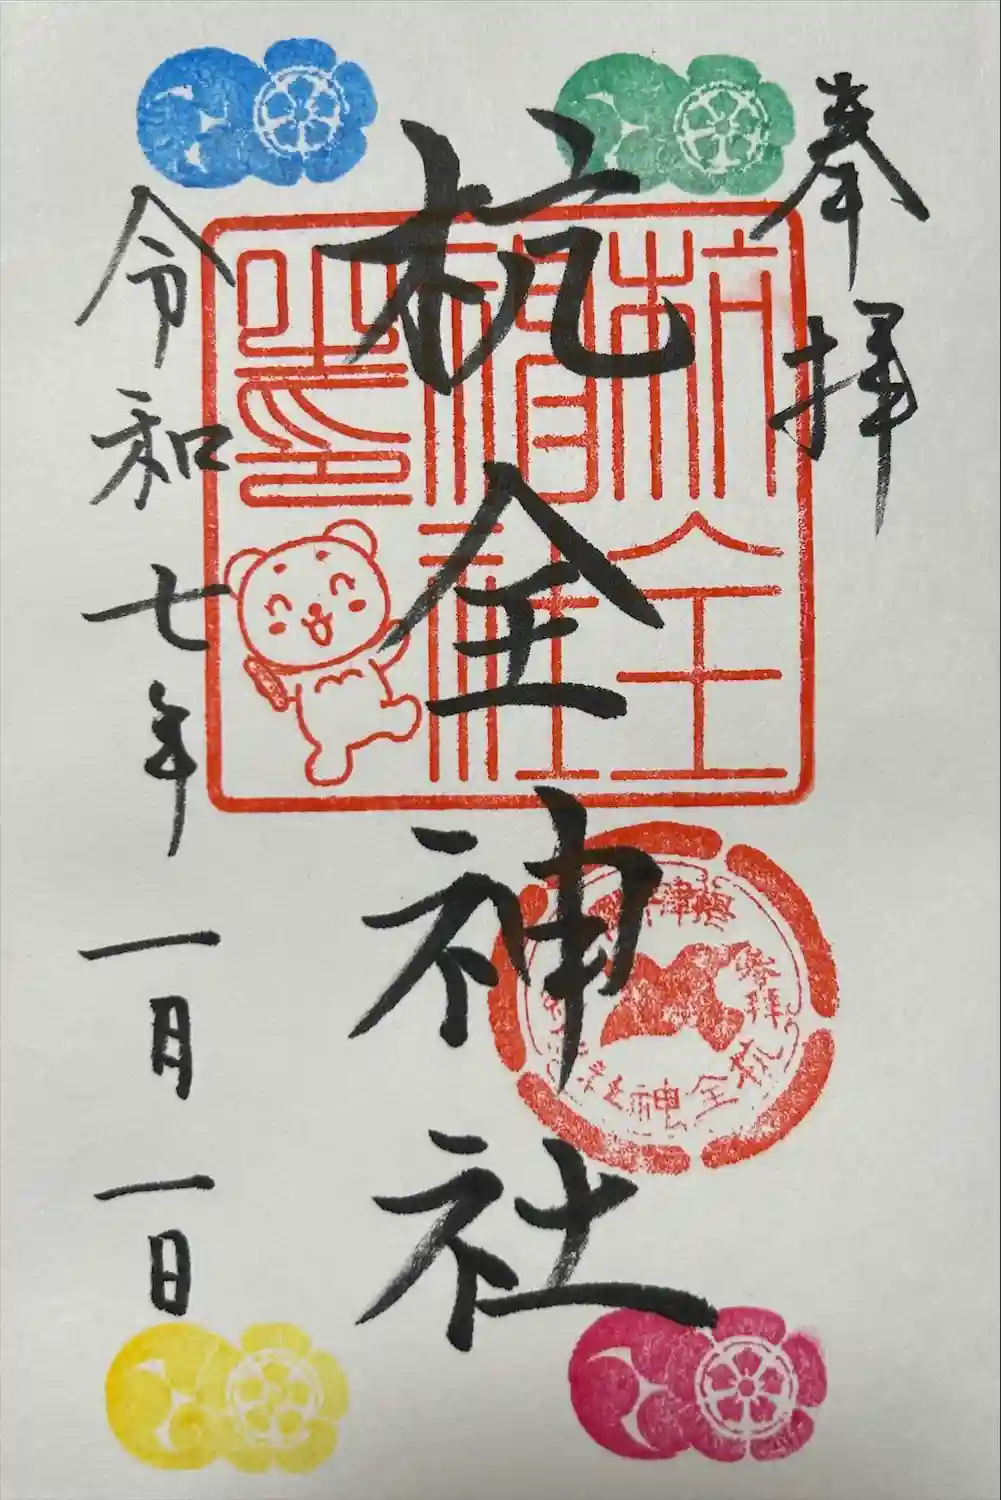 奉拝
杭全神社
令和七年一月一日
杭全
神社
之印
杭全神社